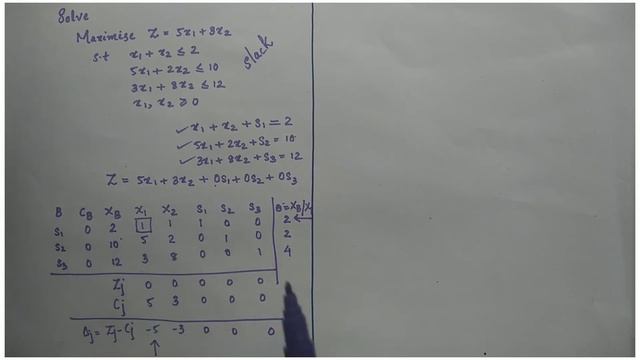 Solve
Maximise Z = 5x1 + 3x2
s.t x1 + x2 ≤ 2
5x1 + 2x2 ≤ 10
3x1 + 8x2 ≤ 12
x1, x2 ≥ 0
slack
✓ x1 + x2 + S1 = 2
✓ 5x1 + 2x2 + S2 = 10
✓ 3x1 + 8x2 + S3 = 12
Z = 5x1 + 3x2 + 0S1 + 0S2 + 0S3
B CB XB x1 x2 S1 S2 S3 θ = XB/x1
S1 0 2 1 1 1 0 0 2 ←
S2 0 10 5 2 0 1 0 2
S3 0 12 3 8 0 0 1 4
Zj 0 0 0 0 0
Cj 5 3 0 0 0
Δj = Zj - Cj -5 -3 0 0 0
↑